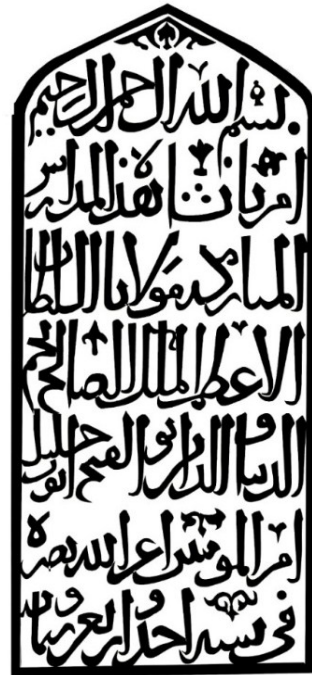 بسم الله الرحمن الرحيم
امر بانشا هذه المدارس
المباركه مولانا السلطان
الاعظم الملك الصالح نجم
الدنيا والدين ابو الفتح ايوب خليل
امير المومنين اعز الله نصره
في سنه احدى واربعين